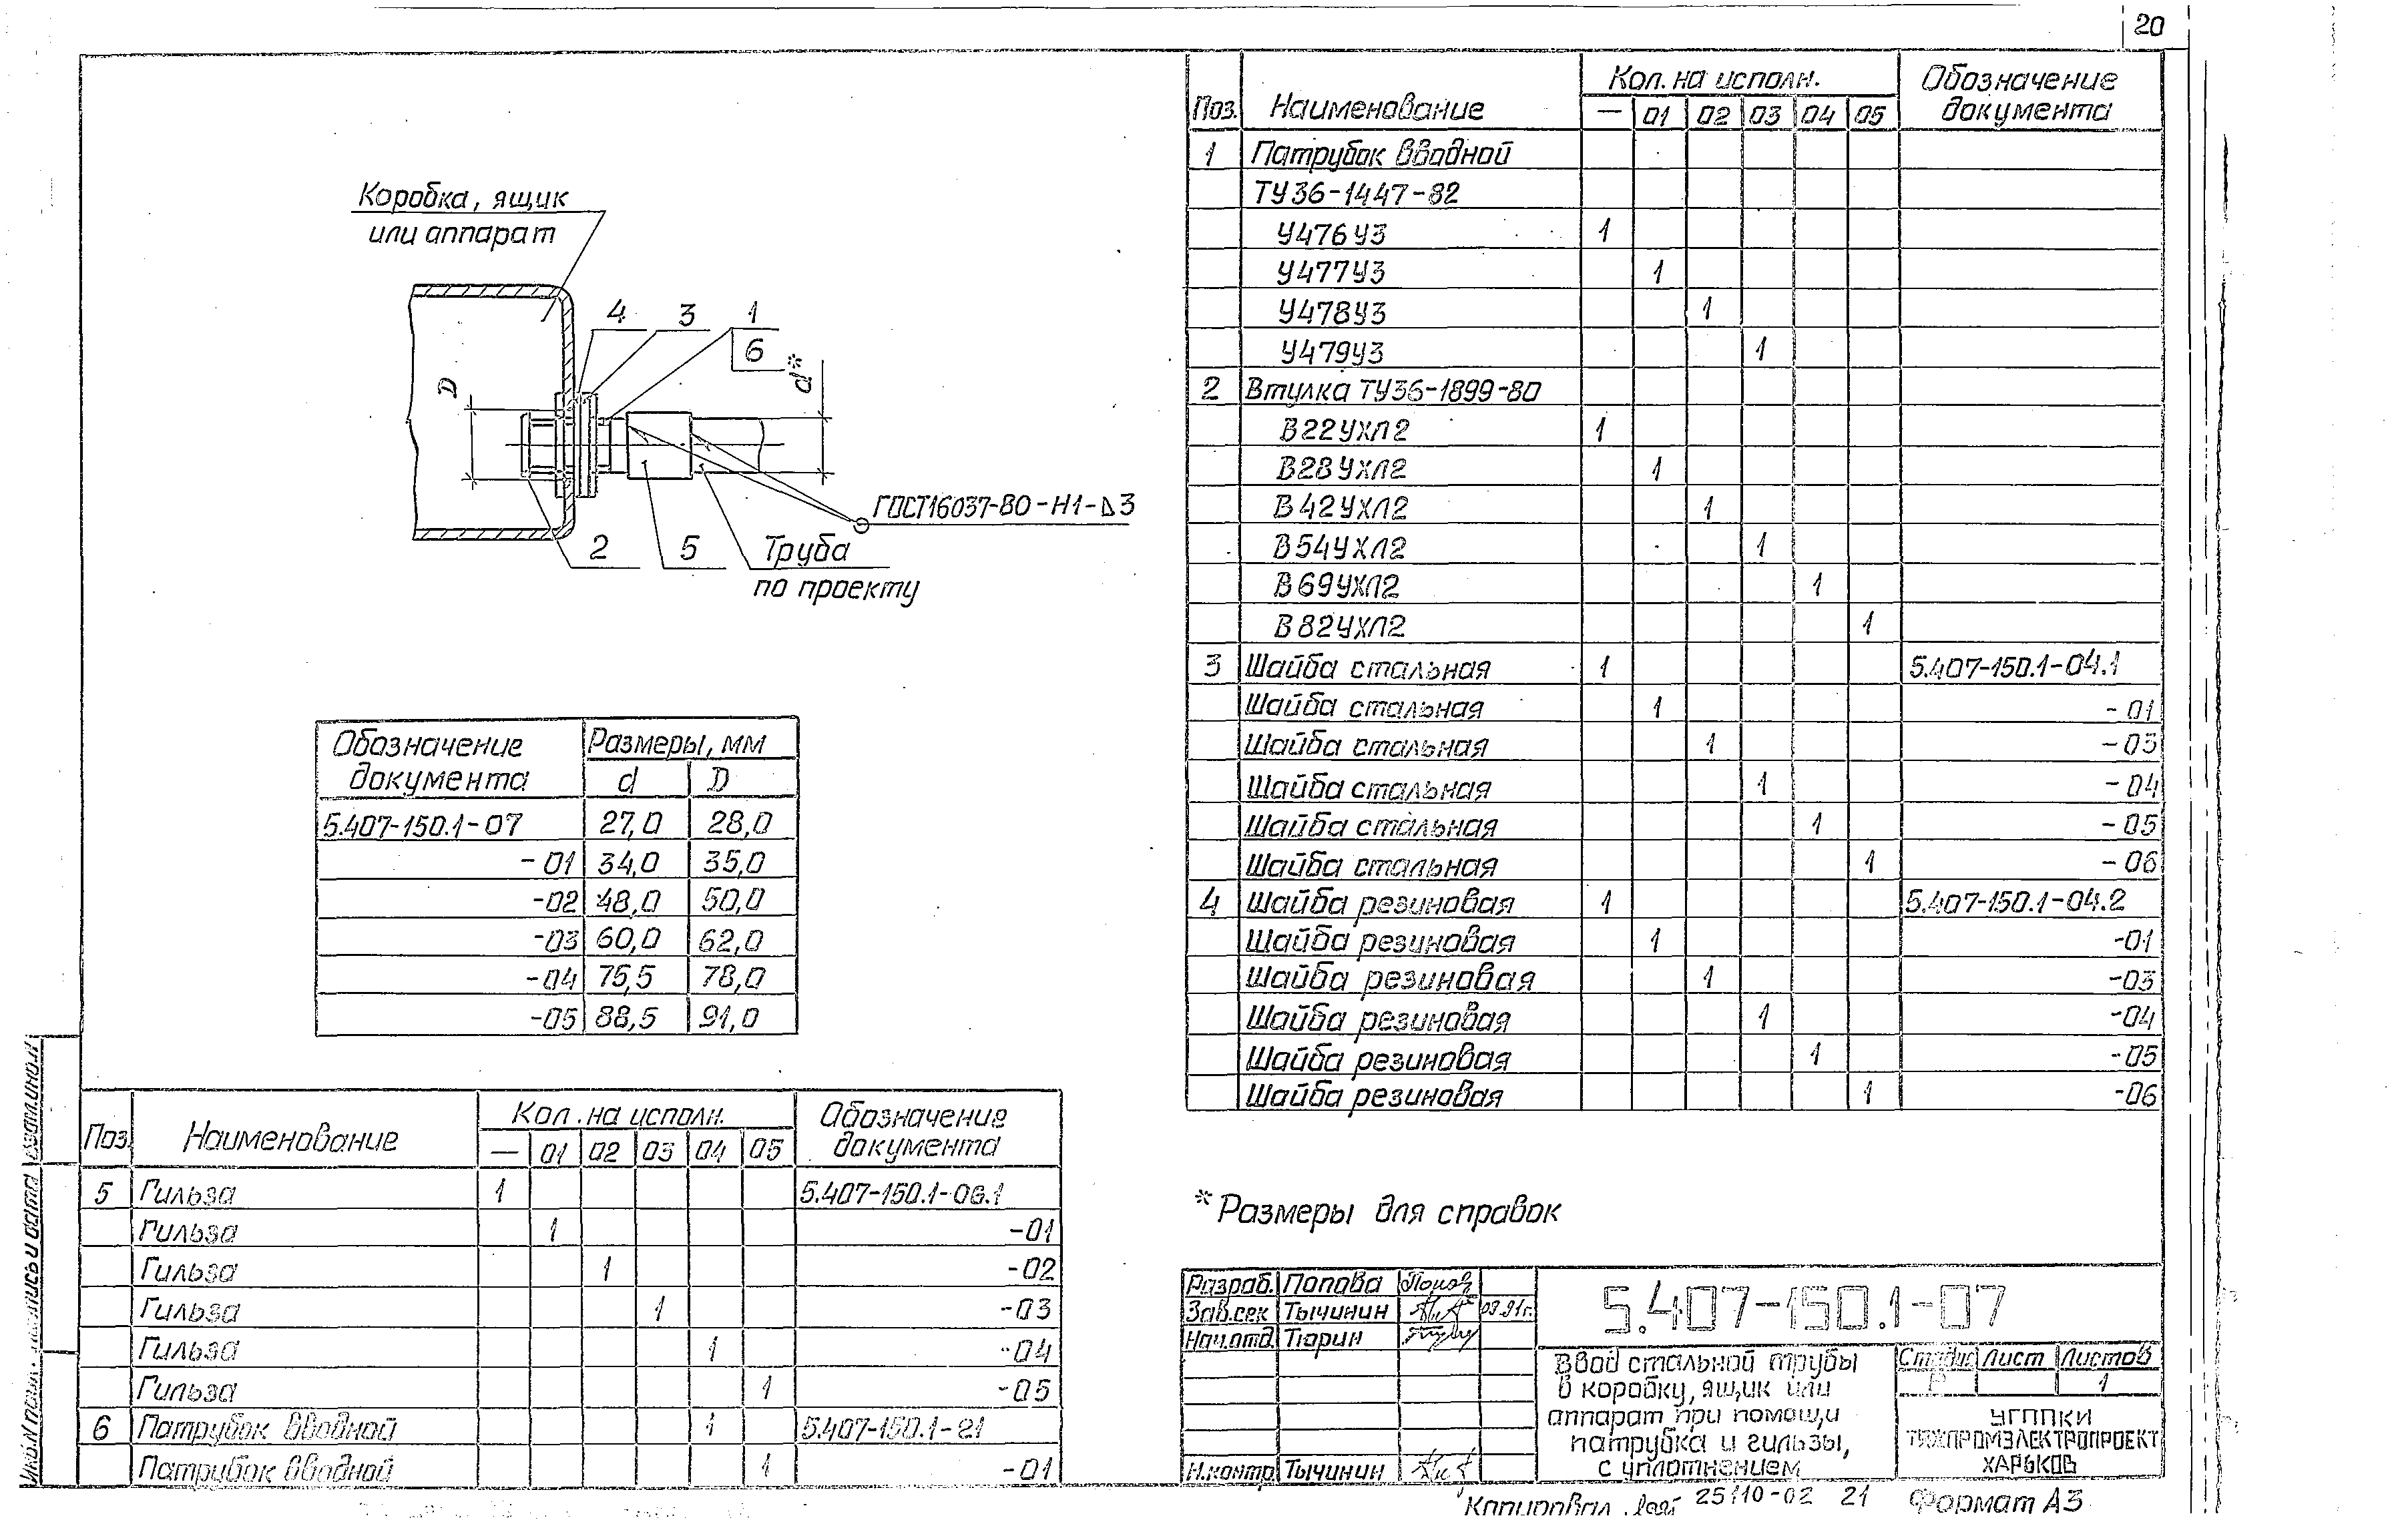 20
Коробка, ящик
или аппарат
4
3
1
6
d*
D
ГОСТ16037-80-Н1-⊿3
2
5
Труба
по проекту
Обозначение документа | Размеры, мм
d | D
5.407-150.1-07 | 27,0 | 28,0
-01 | 34,0 | 35,0
-02 | 48,0 | 50,0
-03 | 60,0 | 62,0
-04 | 75,5 | 78,0
-05 | 88,5 | 91,0
Поз. | Наименование | Кол. на исполн. | Обозначение документа
— | 01 | 02 | 03 | 04 | 05
1 | Патрубок вводной
ТУ36-1447-82
У476У3 | 1
У477У3 | 1
У478У3 | 1
У479У3 | 1
2 | Втулка ТУ36-1899-80
В22УХЛ2 | 1
В28УХЛ2 | 1
В42УХЛ2 | 1
В54УХЛ2 | 1
В69УХЛ2 | 1
В82УХЛ2 | 1
3 | Шайба стальная | 1 | 5.407-150.1-04.1
Шайба стальная | 1 | -01
Шайба стальная | 1 | -03
Шайба стальная | 1 | -04
Шайба стальная | 1 | -05
Шайба стальная | 1 | -06
4 | Шайба резиновая | 1 | 5.407-150.1-04.2
Шайба резиновая | 1 | -01
Шайба резиновая | 1 | -03
Шайба резиновая | 1 | -04
Шайба резиновая | 1 | -05
Шайба резиновая | 1 | -06
Поз. | Наименование | Кол. на исполн. | Обозначение документа
— | 01 | 02 | 03 | 04 | 05
5 | Гильза | 1 | 5.407-150.1-06.1
Гильза | 1 | -01
Гильза | 1 | -02
Гильза | 1 | -03
Гильза | 1 | -04
Гильза | 1 | -05
6 | Патрубок вводной | 1 | 5.407-150.1-21
Патрубок вводной | 1 | -01
* Размеры для справок
Разраб. Попова
Зав.сек Тычинин 09.91г.
Нач.отд. Тюрин
Н.контр Тычинин
5.407-150.1-07
Ввод стальной трубы
в коробку, ящик или
аппарат при помощи
патрубка и гильзы,
с уплотнением
Стадия | Лист | Листов
Р | 1
УГППКИ
ТЯЖПРОМЭЛЕКТРОПРОЕКТ
ХАРЬКОВ
Копировал
25110-02 21
Формат А3